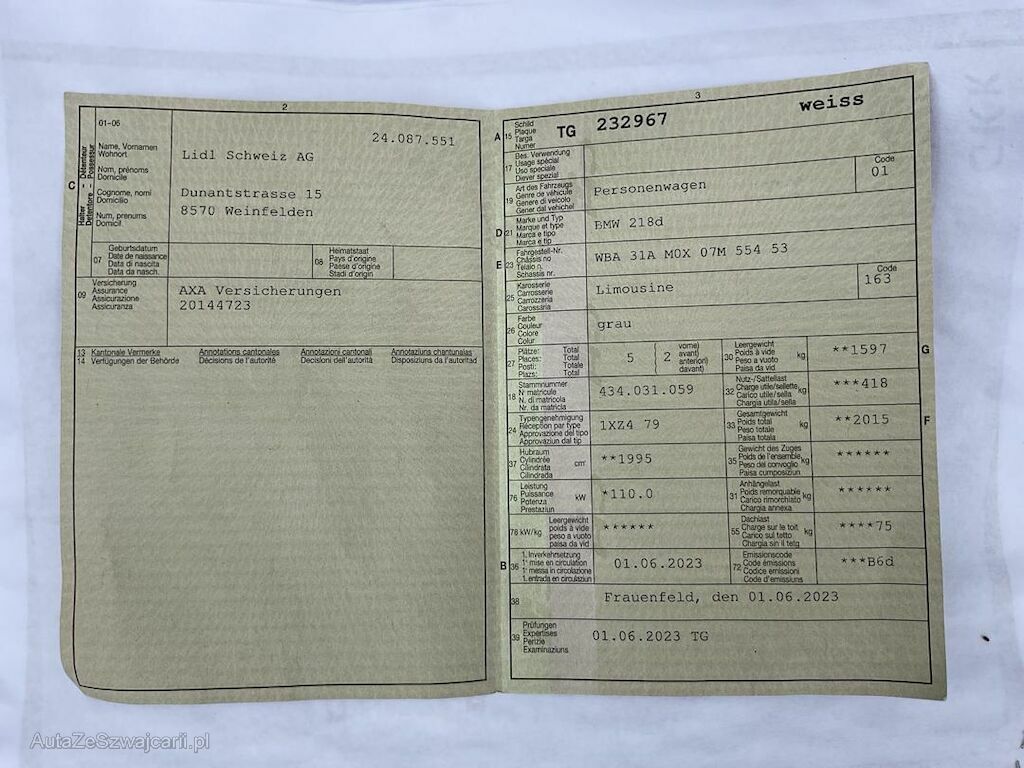 2
01-06
24.087.551
Halter - Détenteur
Detentore - Possessur
C
Name, Vornamen
Wohnort
Nom, prénoms
Domicile
Cognome, nomi
Domicilio
Num, prenums
Domicil
Lidl Schweiz AG
Dunantstrasse 15
8570 Weinfelden
07
Geburtsdatum
Date de naissance
Data di nascita
Data da nasch.
08
Heimatstaat
Pays d'origine
Paese d'origine
Stadi d'origin
09
Versicherung
Assurance
Assicurazione
Assicuranza
AXA Versicherungen
20144723
13 Kantonale Vermerke Annotations cantonales Annotazioni cantonali Annotaziuns chantunalas
14 Verfügungen der Behörde Décisions de l'autorité Decisioni dell'autorità Disposiziuns da l'autoritad
3
A 15
Schild
Plaque
Targa
Numer
TG 232967 weiss
17
Bes. Verwendung
Usage spécial
Uso speciale
Diever spezial
19
Art des Fahrzeugs
Genre de véhicule
Genere di veicolo
Gener dal vehichel
Personenwagen
Code
01
D 21
Marke und Typ
Marque et type
Marca e tipo
Marca e tip
BMW 218d
E 23
Fahrgestell-Nr.
Châssis no
Telaio n.
Schassis nr.
WBA 31A M0X 07M 554 53
25
Karosserie
Carrosserie
Carrozzeria
Carossaria
Limousine
Code
163
26
Farbe
Couleur
Colore
Colur
grau
27
Plätze: Total
Places: Total
Posti: Totale
Plazs: Total
5
2
vorne)
avant)
anteriori)
davant)
30
Leergewicht
Poids à vide
Peso a vuoto kg
Paisa da vid
**1597
G
18
Stammnummer
N° matricule
N. di matricola
Nr. da matricla
434.031.059
32
Nutz-/Sattellast
Charge utile/sellette kg
Carico utile/sella
Chargia utila/sella
***418
24
Typengenehmigung
Réception par type
Approvazione del tipo
Approvaziun dal tip
1XZ4 79
33
Gesamtgewicht
Poids total kg
Peso totale
Paisa totala
**2015
F
37
Hubraum
Cylindrée cm³
Cilindrata
Cilindrada
**1995
35
Gewicht des Zuges
Poids de l'ensemble kg
Peso del convoglio
Paisa cumposiziun
******
76
Leistung
Puissance kW
Potenza
Prestaziun
*110.0
31
Anhängelast
Poids remorquable kg
Carico rimorchiato
Chargia annexa
******
78 kW/kg
Leergewicht
poids à vide
peso a vuoto
paisa da vid
******
55
Dachlast
Charge sur le toit kg
Carico sul tetto
Chargia sin il tetg
****75
B 36
1. Inverkehrsetzung
1re mise en circulation
1a messa in circolazione
1. entrada en circulaziun
01.06.2023
72
Emissionscode
Code émissions
Codice emissioni
Code d'emissiuns
***B6d
38
Frauenfeld, den 01.06.2023
39
Prüfungen
Expertises
Perizie
Examinaziuns
01.06.2023 TG
AutaZeSzwajcarii.pl